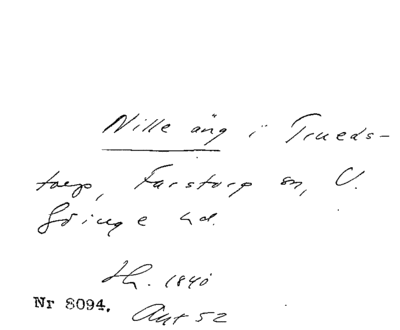 Nille äng i Trueds-
torp, Farstorp sn, V.
Göinge hd.
Lh. 1840
Nr 8094. Akt 52